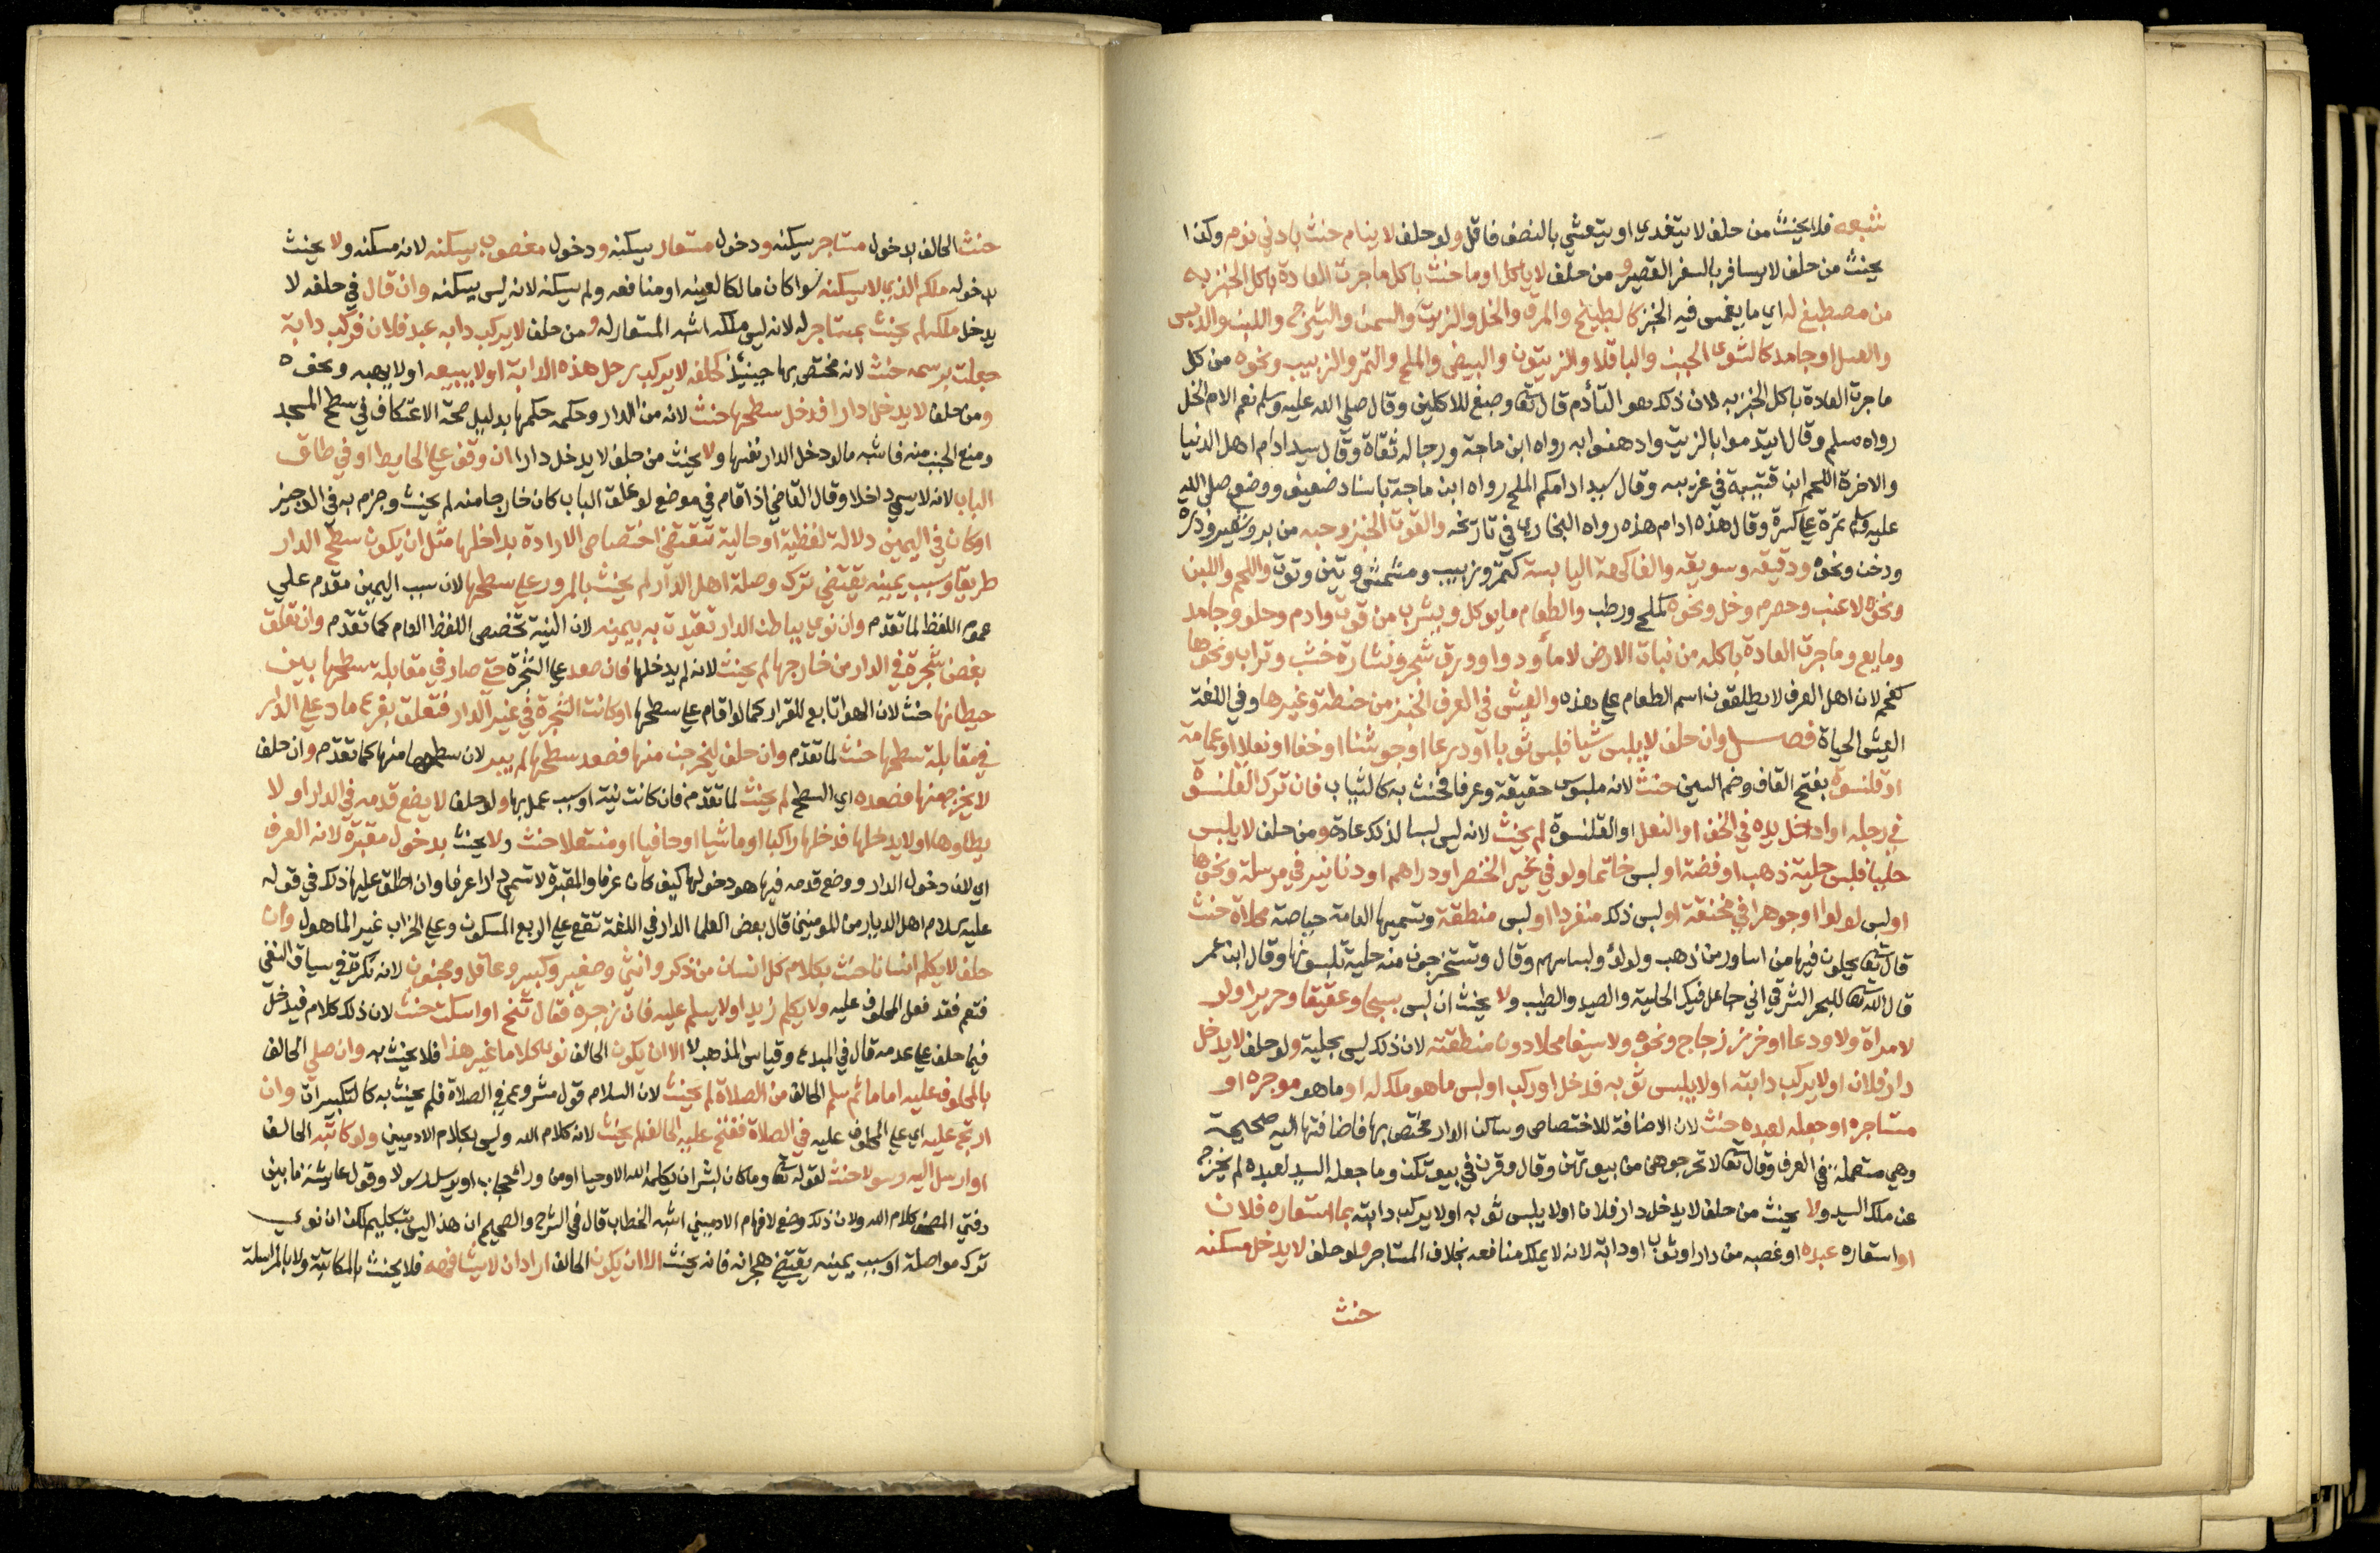 شبعه فلا يحنث من حلف لا يتغدي او يتعشي بالنصف فاقل ولو حلف لا ينام حنث بادني نوم وكذا
يحنث من حلف لا يسافر بالسفر القصير ومن حلف لا ياكل اوما حنث باكل ما جرت العادة باكل الخبز به
من مصطبغ له اي ما يغمس فيه الخبز كالطبيخ والمرق والخل والزيت والسمن والشيرج واللبن والدبس
والعسل او جامد كالشوي الجبن والباقلا والزيتون والبيض والملح والتمر والزبيب ونحوه من كل
ما جرت العادة باكل الخبز به لان ذلك هو التأدم قال تعا وصبغ للاكلين وقال صلي الله عليه وسلم نعم الادم الخل
رواه مسلم وقال ايتدموا بالزيت وادهنوا به رواه ابن ماجة ورجاله ثقاة وقال سيد ادام اهل الدنيا
والاخرة اللحم ابن قتيبة في غريبه وقال سيد ادامكم الملح رواه ابن ماجة باسناد ضعيف ووضع صلي الله
عليه وسلم تمرة علي كسرة وقال هذه ادام هذه رواه البخاري في تاريخه والقوت الخبز وحبه من بر وشعير وذرة
ودخن ونحوه ودقيقه وسويقه والفاكهة اليابسة كتمر وزبيب ومشمش وتين وتوت واللحم واللبن
ونحوه لا عنب وحصرم وخل ونحوه كملح ورطب والطعام ما يوكل ويشرب من قوت وادم وحلو وجامد
ومايع وما جرت العادة باكله من نبات الارض لا ماء ودوا وورق شجر ونشارة خشب وتراب ونحوها
كفحم لان اهل العرف لا يطلقون اسم الطعام علي هذه والعيش في العرف الخبز من حنطة وغيرها وفي اللغة
العيش الحياة فصــل وان حلف لا يلبس شيا فلبس ثوبا او درعا او جوشنا او خفا او نعلا او عمامة
او قلنسوة بفتح القاف وضم السين حنث لانه ملبوس حقيقة وعرفا فحنث به كالثياب فان ترك القلنسوة
في رجله او ادخل يده في الخف او النعل او القلنسوة لم يحنث لانه ليس لبسا لذلك عادة ومن حلف لا يلبس
حليا فلبس حلية ذهب او فضة او لبس خاتما ولو في غير الخنصر او دراهم او دنانير في مرسلة ونحوها
او لبس لولوا او جوهرا في مخنقة او لبس ذلك منفردا او لبس منطقة وتسميها العامة حياصة محلاة حنث
قال تعا يحلون فيها من اساور من ذهب ولولؤ ولباسهم وقال وتستخرجون منه حلية تلبسونها وقال ابن عمر
قال الله تعا للبحر الشرقي اني جاعل فيك الحلية والصيد والطيب ولا يحنث ان لبس سبجا وعقيقا وحريرا ولو
لامراة ولا ودعا او خرز زجاج ونحوه ولا سيفا محلا دون منطقته لان ذلك ليس بحلية ولو حلف لا يدخل
دار فلان او لا يركب دابته او لا يلبس ثوبه فدخل او ركب او لبس ما هو ملك له او ما هو موجره او
مستاجره او جعله لعبده حنث لان الاضافة للاختصاص وساكن الدار مختص بها فاضافتها اليه صحيحة
وهي مستعملة في العرف وقال تعا لا تخرجوهن من بيوتهن وقال وقرن في بيوتكن وما جعله السيد لعبده لم يخرج
عن ملك السيد ولا يحنث من حلف لا يدخل دار فلان او لا يلبس ثوبه او لا يركب دابته بما استعاره فلان
او استعاره عبده او غصبه من دار او ثوب او دابة لانه لا يملك منافعه بخلاف المستاجر ولو حلف لا يدخل مسكنه
حنث
حنث الحالف بدخول مستاجر يسكنه ودخول مستعار يسكنه ودخول مغصوب يسكنه لانه مسكنه ولا يحنث
بدخوله ملكه الذي لا يسكنه سوا كان مالكا لعينه او منافعه ولم يسكنه لانه ليس يسكنه وان قال في حلفه لا
يدخل ملكه لم يحنث بمستاجر له لانه ليس ملكه اشبه المستعار له ومن حلف لا يركب دابه عبد فلان فركب دابة
جعلت برسمه حنث لانه مختص بها حينيذ كحلفه لا يركب رحل هذه الدابة او لا يبيعه او لا يهبه ونحوه
ومن حلف لا يدخل دارا فدخل سطحها حنث لانه من الدار وحكمه حكمها بدليل صحة الاعتكاف في سطح المسجد
ومنع الجنب منه فاشبه ما لو دخل الدار نفسها ولا يحنث من حلف لا يدخل دارا ان وقف علي الحايط او في طاق
الباب لانه لا يسمي داخلا وقال القاضي اذا قام في موضع لو غلق الباب كان خارجا منه لم يحنث وجزم به في الوجيز
او كان في اليمين دلالة لفظية او حالية تقتضي اختصاص الارادة بداخلها مثل ان يكون سطح الدار
طريقا وسبب يمينه يقتضي ترك وصلة اهل الدار لم يحنث بالمرور علي سطحها لان سبب اليمين مقدم علي
عموم اللفظ لما تقدم وان نوي بباطن الدار تقيدت به يمينه لان النية تخصص اللفظ العام كما تقدم وان تعلق
بغصن شجرة في الدار من خارجها لم يحنث لانه لم يدخلها فان صعد علي الشجرة حتي صار في مقابلة سطحها بين
حيطانها حنث لان الهوا تابع للقرار كما لو اقام علي سطحها او كانت الشجرة في غير الدار فتعلق بفرع ماد علي الدار
في مقابلة سطحها حنث لما تقدم وان حلف ليخرجن منها فصعد سطحها لم يبر لان سطحها منها كما تقدم وان حلف
لا يخرج منها فصعده اي السطح لم يحنث لما تقدم فان كانت نية او سبب عمل بها ولو حلف لا يضع قدمه في الدار او لا
يطاوها او لا يدخلها فدخلها راكبا او ماشيا او حافيا او منتعلا حنث ولا يحنث بدخول مقبرة لانه العرف
اي لان دخول الدار ووضع قدمه فيها هو دخولها كيف كان عرفا والمقبرة لا تسمي دارا عرفا وان اطلق عليها ذلك في قوله
عليه سلام اهل الديار من المومنين قال بعض العلما الدار في اللغة تقع علي الربع المسكون وعلي الخراب غير الماهول وان
حلف لا يكلم انسانا حنث بكلام كل انسان من ذكر وانثي وصغير وكبير وعاقل ومجنون لانه نكرة في سياق النفي
فتعم فقد فعل المحلوف عليه ولا يكلم زيدا ولا يسلم عليه فان زجره فقال تنح او اسكت حنث لان ذلك كلام فيدخل
فيما حلف علي عدمه قال في المبدع وقياس المذهب لا الا ان يكون الحالف نوي كلاما غير هذا فلا يحنث به وان صلي الحالف
بالمحلوف عليه اماما ثم سلم الحالف من الصلاة لم يحنث لان السلام قول مشروع في الصلاة فلم يحنث به كالتكبيرات وان
ارتج عليه اي علي المحلوف عليه في الصلاة ففتح عليه الحالف لم يحنث لانه كلام الله وليس بكلام الادميين ولو كاتبه الحالف
او ارسل اليه رسولا حنث لقوله تعا وما كان لبشر ان يكلمه الله الا وحيا او من وراي حجاب او يرسل رسولا وقول عايشة ما بين
دفتي المصحف كلام الله ولان ذلك وضع لافهام الادميين اشبه الخطاب قال في الشرح والصحيح ان هذا ليس بتكليم لكن ان نوي
ترك مواصلته او سبب يمينه يقتضي هجرانه فانه يحنث الا ان يكون الحالف اراد ان لا يشافهه فلا يحنث بالمكاتبة ولا بالمراسلة